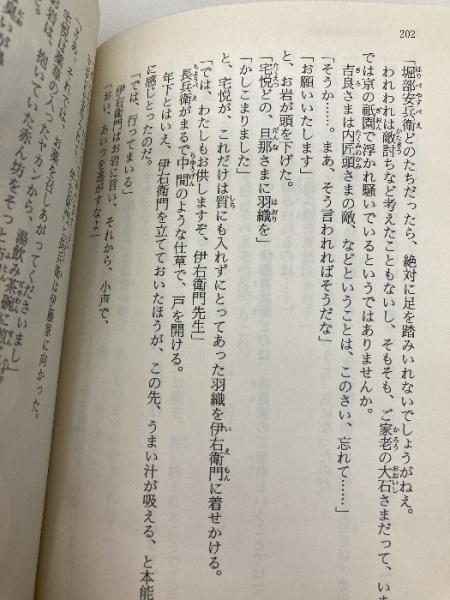 202
「堀部安兵衛どのたちだったら、絶対に足を踏みいれないでしょうがねえ。
われわれは敵討ちなど考えたこともないし、そもそも、ご家老の大石さまだって、いま
では京の祇園で浮かれ騒いでいるというではありませんか。
吉良さまは内匠頭さまの敵、などということは、このさい、忘れて……」
「そうか……。まあ、そう言われればそうだな」
「お願いいたします」
と、お岩が頭を下げた。
「宅悦どの、旦那さまに羽織を」
「かしこまりました」
と、宅悦が、これだけは質にも入れずにとってあった羽織を伊右衛門に着せかける。
「では、わたしもお供しますぞ、伊右衛門先生」
長兵衛がまるで中間のような仕草で、戸を開ける。
年下とはいえ、伊右衛門を立てておいたほうが、この先、うまい汁が吸える、と本能
に感じとったのだ。
「では、行ってまいる」
伊右衛門はお岩に言い、それから、小声で、
「おい、あいつを逃がすなよ」
長兵衛は伊藤家に向かった。
「さあ、それでは、お薬を召しあがってくださいまし」
宅悦は薬草の入ったヤカンから、湯飲み茶碗に
お岩は、抱いていた赤ん坊をそっと